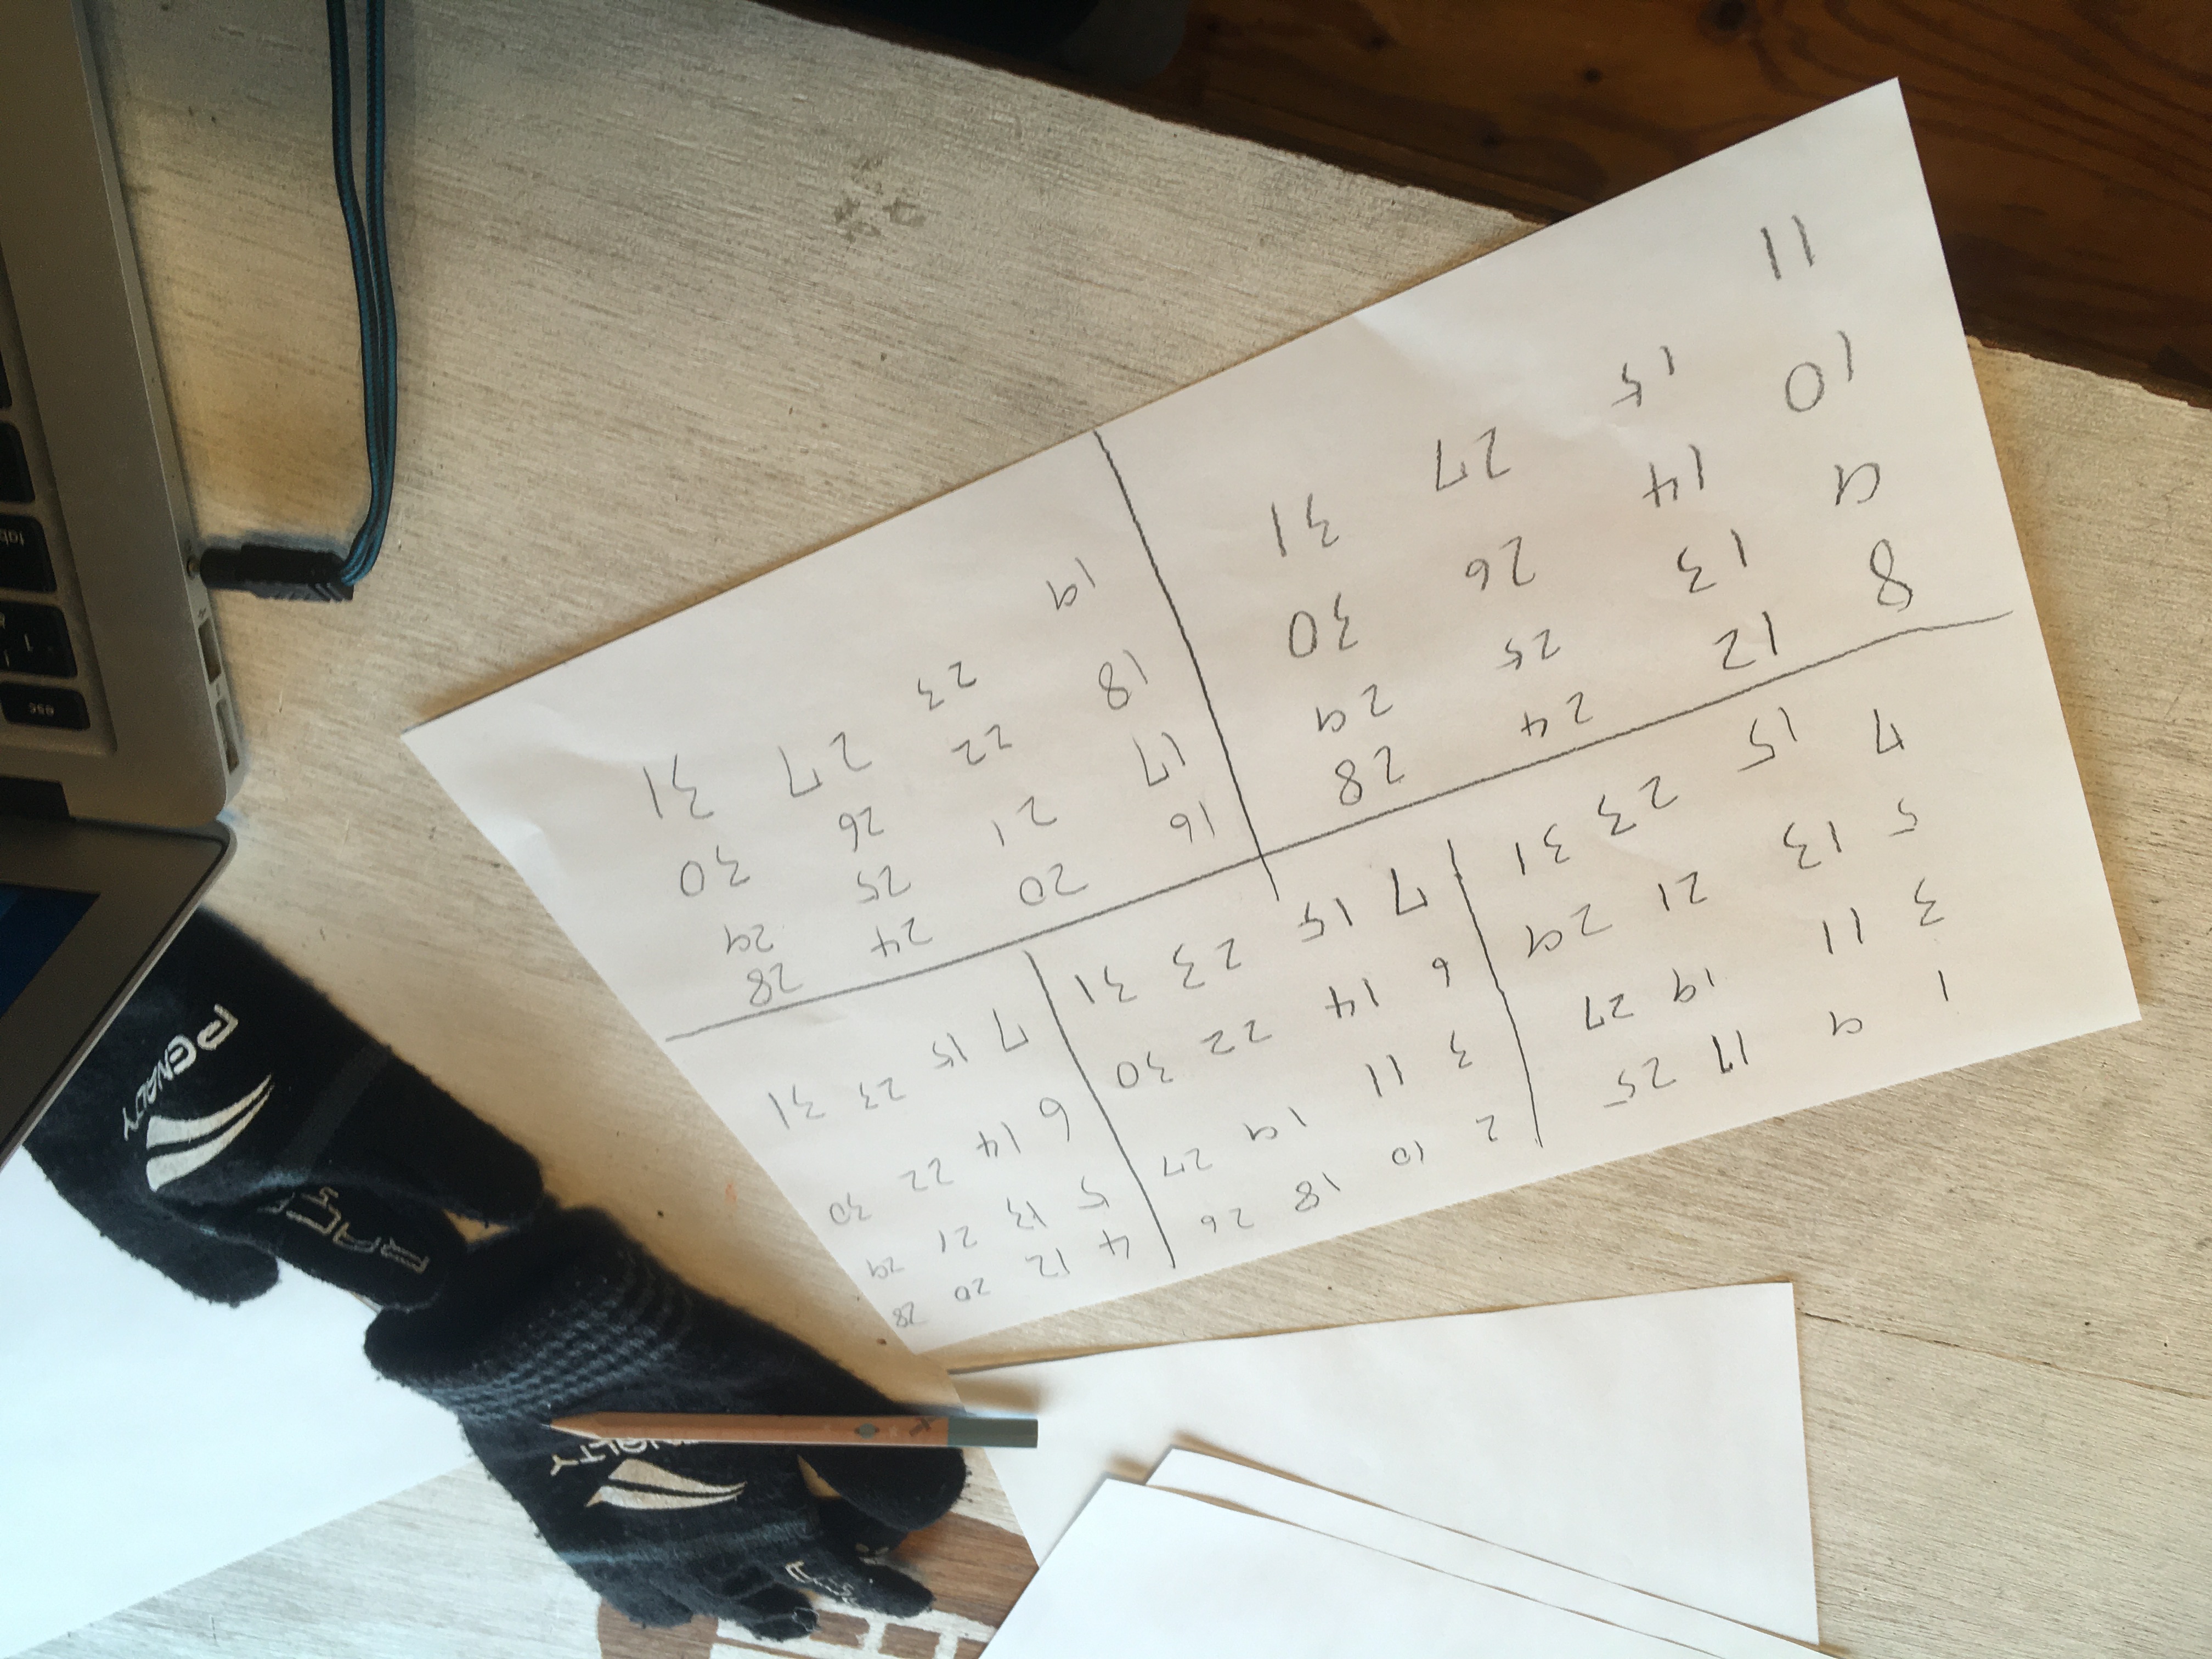 1 9 17 25
3 11 19 27
5 13 21 29
7 15 23 31
2 10 18 26
3 11 19 27
6 14 22 30
7 15 23 31
4 12 20 28
5 13 21 29
6 14 22 30
7 15 23 31
8 12 24 28
9 13 25 29
10 14 26 30
11 15 27 31
16 20 24 28
17 21 25 29
18 22 26 30
19 23 27 31
PENALTY
PENALTY
esc
tab